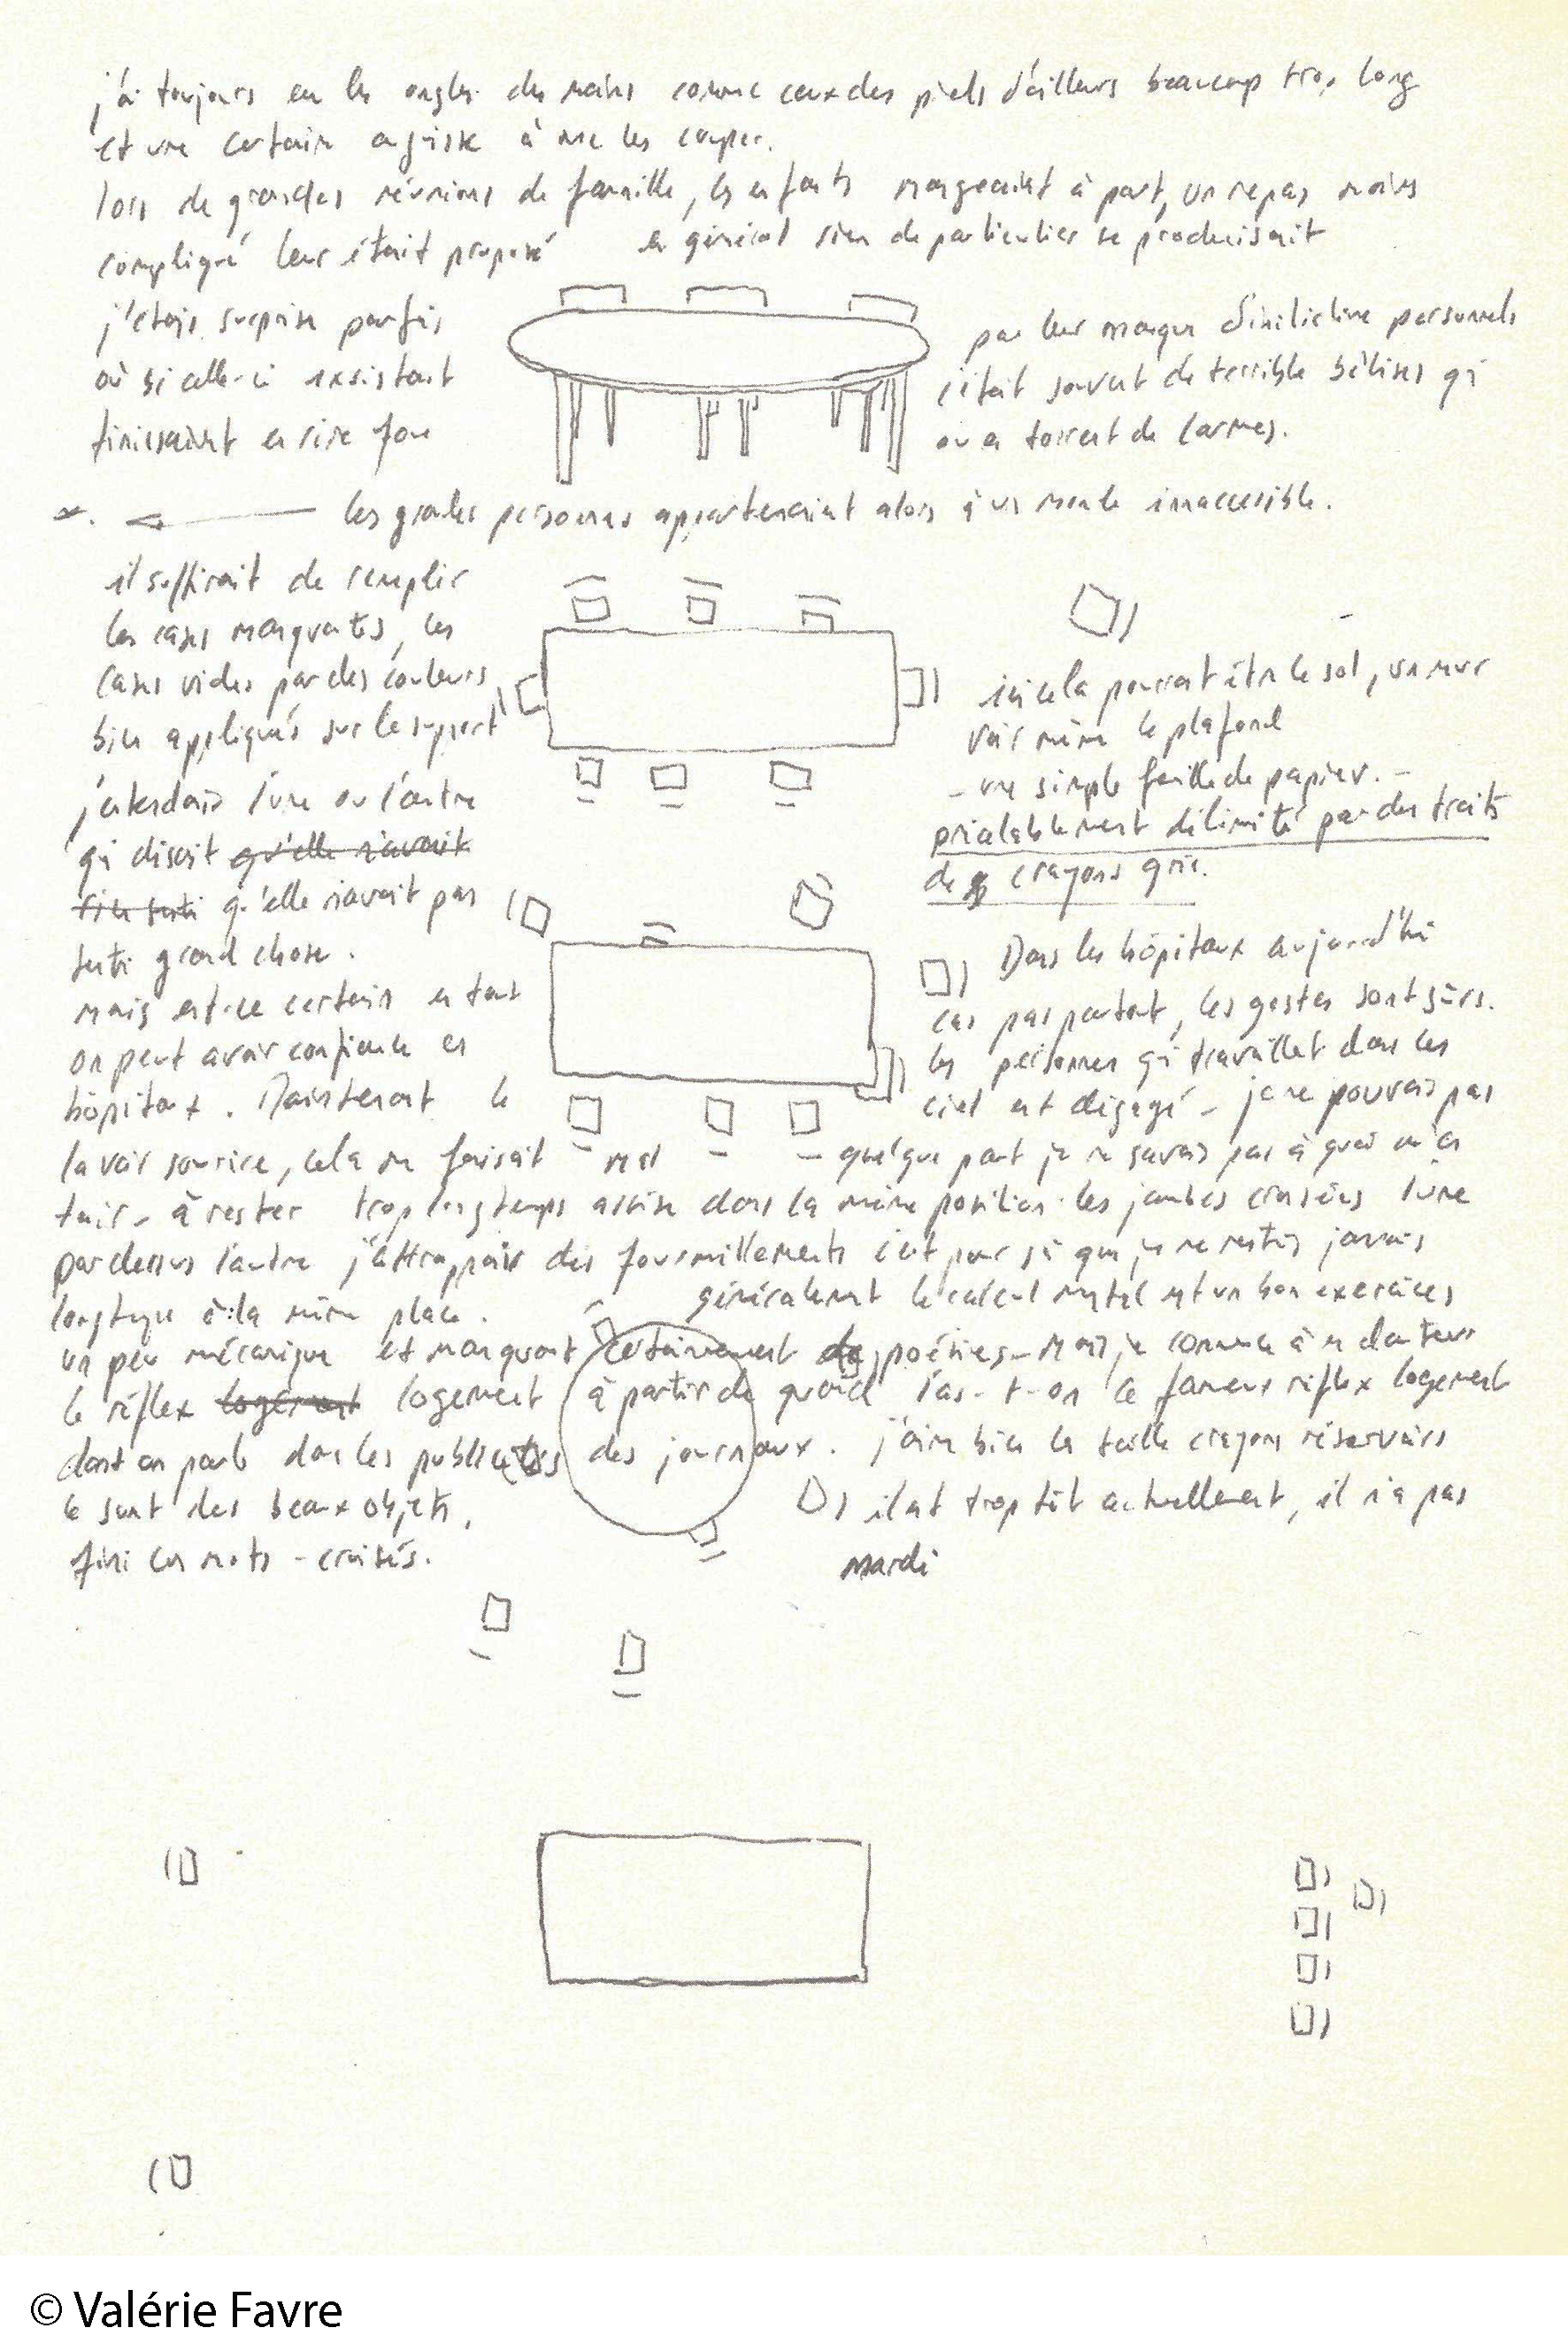 j'ai toujours eu les ongles des mains comme ceux des pieds d'ailleurs beaucoup trop long
et une certain angoisse à me les couper.
lors de grandes réunions de famille, les enfants mangeaient à part, un repas moins
compliqué leur était proposé en général rien de particulier se produisait
j'étais surprise parfois par leur manque d'initiative personnels
où si celle-ci existait c'était souvent de terrible bêtises qi
finissaient en rire fou ou en torrent de larmes.
les grandes personnes appartenaient alors à un monde innaccessible.
il suffirait de remplir
les cases manquantes, les
cases vides par des couleurs
bien appliqués sur le support
j'entendais l'une ou l'autre
qi disait qu'elle n'avait
rien senti qu'elle n'avait pas
senti grand chose.
mais est-ce certain en tout
on peut avoir confiance en
ici cela pourrait être le sol, un mur
voir même le plafond
- une simple feuille de papier. -
préalablement délimité par des traits
de crayons gris.
Dans les hôpitaux aujourd'hui
cas pas partout, les gestes sont sûrs.
les personnes qi travaillet dans les
hôpitaux. Maintenant le ciel est dégagé - je ne pouvais pas
la voir sourire, cela me faisait mal - quelque part je ne savais pas à quoi m'en
tenir - à rester trop longtemps assise dans la même position les jambes croisées l'une
par dessus l'autre j'attrappais des fourmillements c'est pour ça que je ne restais jamais
longtemps à la même place. généralement le calcul mental est un bon exercices
un peu mécanique et manquant certainement de poésies - mais je commence à en douter
le réflex logement logement à partir de quand l'as-t-on ce fameux réflex logement
dont on parle dans les publicités des journaux. j'aime bien les taille crayons réservoirs
ce sont des beaux objets, il est trop tôt actuellement, il n'a pas
fini ces mots-croisés. mardi
© Valérie Favre